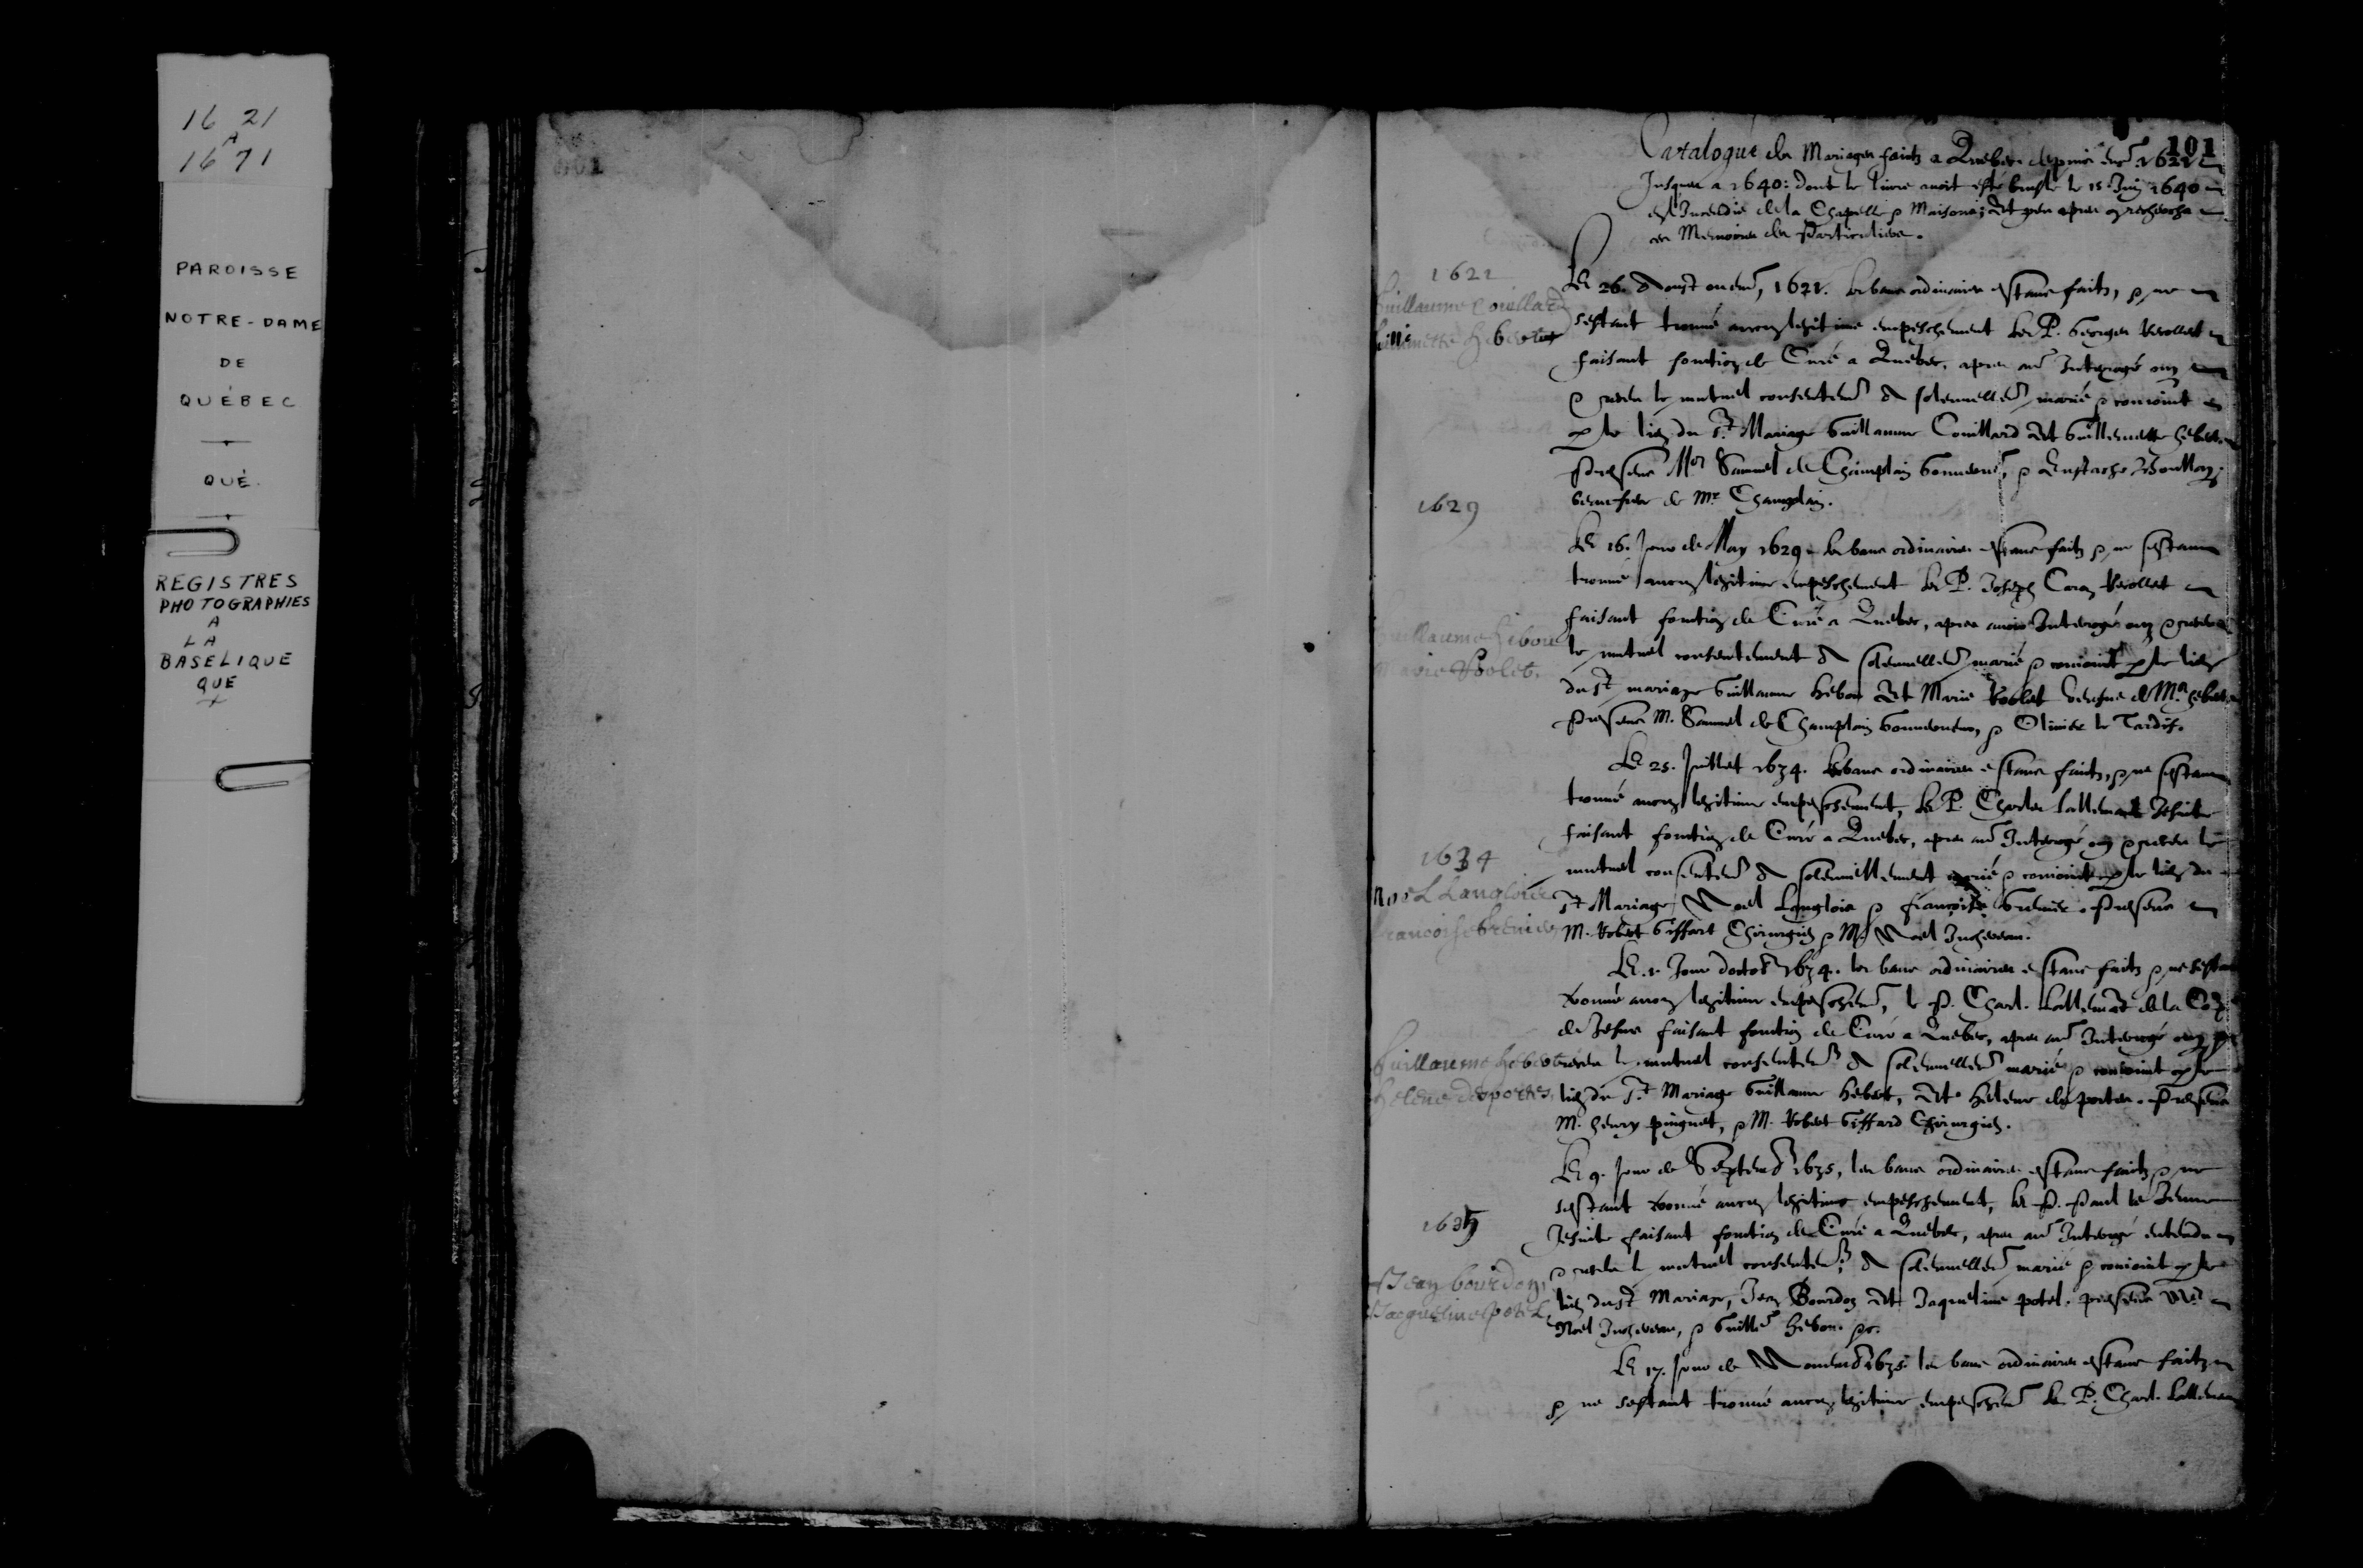 16 21
A
16 71
PAROISSE
NOTRE-DAME
DE
QUÉBEC
QUÉ.
REGISTRES
PHOTOGRAPHIES
A
LA
BASELIQUE
QUE
101
Catalogue des Mariages faicts a Quebec depuis 1621
Jusques a 1640: dont le livre avoit esté bruslé le 15 Juin 1640
Incendie de la Chapelle & Maison; et apres recherche
es Memoires des Particuliers.
1621
Guillaume Couillard
Guillmette hebert
Le 26. Aoust 1621. les bans ordinaires estans faits, & ne
s'estant trouvé aucun legitime empeschement le P. Georges Recollect
faisant fonction de Curé a Quebec, apres Interrogé ouy
& receu le mutuel consentemt A solennellemt marié & conioint
p le lien du St. Mariage Guillaume Couillard et Guillemette hebert
presence Mr Samuel de Champlain Gouverneur, & Eustache Boullay
beaufrere de Mr Champlain.
1629
Le 16. Jour de May 1629. les bans ordinaires estans faits & ne sestant
trouvé aucun legitime empeschement le P. Joseph Caron Recollect
faisant fonction de Curé a Quebec, apres avoir Interrogé ouy & receu
Guillaume hebou
Marie Rolet.
le mutuel consentement A solennellemt marié & conioint p le lien
du St mariage Guillaume hebou et Marie Rollet vefve de Mr. hebert
presence M. Samuel de Champlain Gouverneur, & Olivier le Tardif.
Le 25. Juillet 1634. les bans ordinaires estans faits, & ne sestant
trouvé aucun legitime empeschement, le P. Charles Lallemant Jesuite
faisant fonction de Curé a Quebec, apres Interrogé ouy & receu le
1634
mutuel consentemt A solennellement marié & conioint p le lien du
Noel Langlois
françoise Grenier
St Mariage, Noel Langlois & françoise Grenier. Presence
M. Robert Giffart Chirurgien & M. Noel Juchereau.
Le .1. Jour doctob 1634. les bans ordinaires estans faits & ne sestant
trouvé aucun legitime empeschemt, le P. Charl. Lallemāt de la Cop.
de Jesus faisant fonction de Curé a Quebec, apres Interrogé ouy &
Guillaume hebert
helene desportes
receu le mutuel consentemt A solennellemt marié & conioint p le
lien du St. Mariage Guillaume hebert, et helene desportes. Presence
M. henry pinguet, & M. Robert Giffard Chirurgien.
Le 9. Jour de Septemb 1635, les bans ordinaires estans faits & ne
sestant trouvé aucun legitime empeschement, le P. Paul le Jeune
1635
Jesuite faisant fonction de Curé a Quebec, apres Interrogé entendu
& receu le mutuel consentemt, A solennellemt marié & conioint p le
Jean bourdon,
Jacqueline potel,
lien du St Mariage, Jean Bourdon et Jaqueline potel. presence
Noel Juchereau, & Guille hebou. &c.
Le 17. Jour de Novemb 1635. les bans ordinaires estans faits
& ne sestant trouvé aucun legitime empeschemt le P. Charl. Lallemant